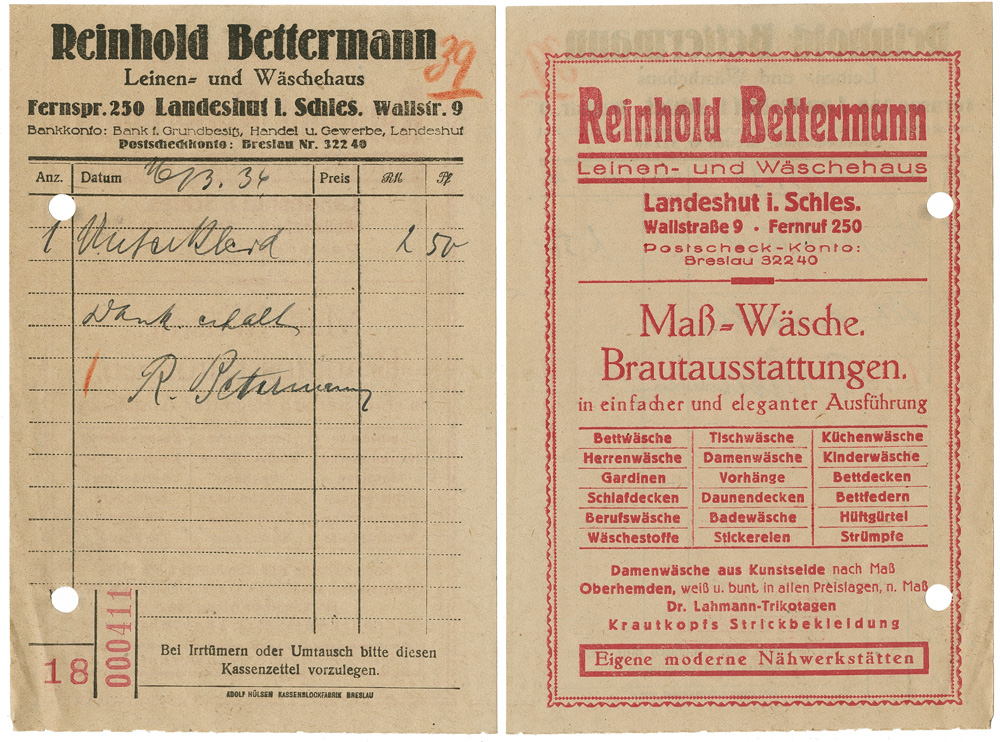 Reinhold Bettermann
39
Leinen- und Wäschehaus
Fernspr. 250 Landeshut i. Schles. Wallstr. 9
Bankkonto: Bank f. Grundbesitz, Handel u. Gewerbe, Landeshut
Postscheckkonto: Breslau Nr. 322 40
Anz. Datum 16/3.34 Preis RM Pf
1 Unterkleid 2 50
Dank. erhalt
R. Bettermann
18 000411
Bei Irrtümern oder Umtausch bitte diesen
Kassenzettel vorzulegen.
ADOLF HÜLSEN KASSENBLOCKFABRIK BRESLAU
Reinhold Bettermann
Leinen- und Wäschehaus
Landeshut i. Schles.
Wallstraße 9 · Fernruf 250
Postscheck-Konto:
Breslau 32240
Maß-Wäsche.
Brautausstattungen.
in einfacher und eleganter Ausführung
Bettwäsche Tischwäsche Küchenwäsche
Herrenwäsche Damenwäsche Kinderwäsche
Gardinen Vorhänge Bettdecken
Schlafdecken Daunendecken Bettfedern
Berufswäsche Badewäsche Hüftgürtel
Wäschestoffe Stickereien Strümpfe
Damenwäsche aus Kunstseide nach Maß
Oberhemden, weiß u. bunt, in allen Preislagen, n. Maß
Dr. Lahmann-Trikotagen
Krautkopfs Strickbekleidung
Eigene moderne Nähwerkstätten